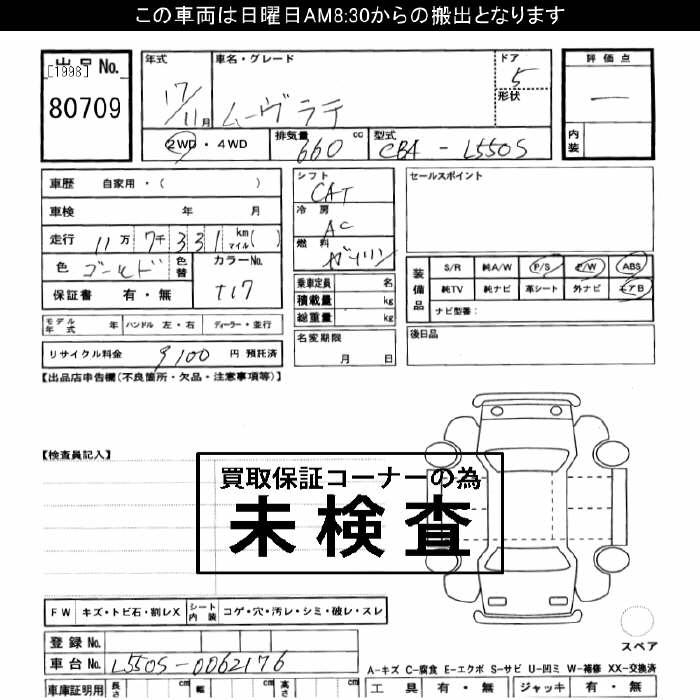 この車両は日曜日AM8:30からの搬出となります
出品 No.
[1998]
80709
年式
17/11月
車名・グレード
ムーヴラテ
ドア
5
形状
評価点
—
内装
2WD・4WD
排気量
660 cc
型式
CBA - L550S
車歴 自家用・( )
車検 年 月
走行 11万 7千 331 km マイル( )
色 ゴールド
色替
カラーNo.
T17
保証書 有・無
シフト
CAT
冷房
AC
燃料
ガソリン
乗車定員 名
積載量 kg
総重量 kg
セールスポイント
装備品
S/R 純A/W P/S P/W ABS
純TV 純ナビ 革シート 外ナビ エアB
ナビ型番:
モデル年式 年 ハンドル 左・右 ディーラー・並行
リサイクル料金 9100 円 預託済
名変期限
月 日
後日品
【出品店申告欄(不良箇所・欠品・注意事項等)】
【検査員記入】
買取保証コーナーの為
未検査
FW キズ・トビ石・割レX シート内装 コゲ・穴・汚レ・シミ・破レ・スレ
登録 No.
車台 No. L550S-0062176
スペア
A-キズ C-腐食 E-エクボ S-サビ U-凹ミ W-補修 XX-交換済
車庫証明用 長さ cm 幅 cm 高さ cm
工具 有・無 ジャッキ 有・無